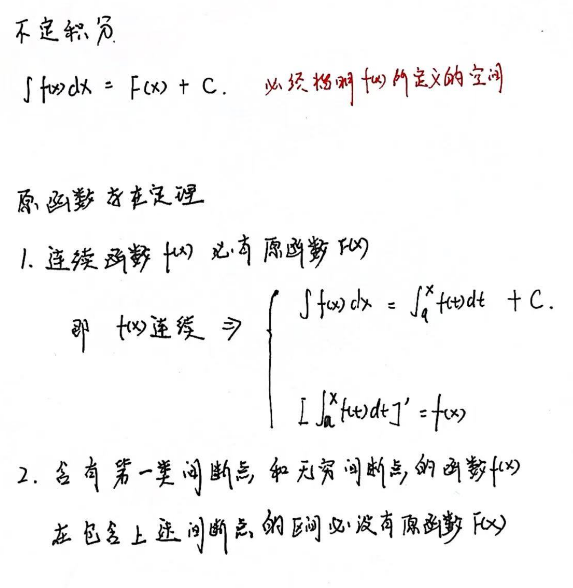 不定积分
∫f(x)dx = F(x) + C. 必须指明f(x)所定义的空间
原函数存在定理
1. 连续函数f(x)必有原函数F(x)
即 f(x)连续 ⇒ { ∫f(x)dx = ∫ₐˣf(t)dt + C.
[∫ₐˣf(t)dt]' = f(x)
2. 含有第一类间断点和无穷间断点的函数f(x)
在包含上述间断点的区间必没有原函数F(x)